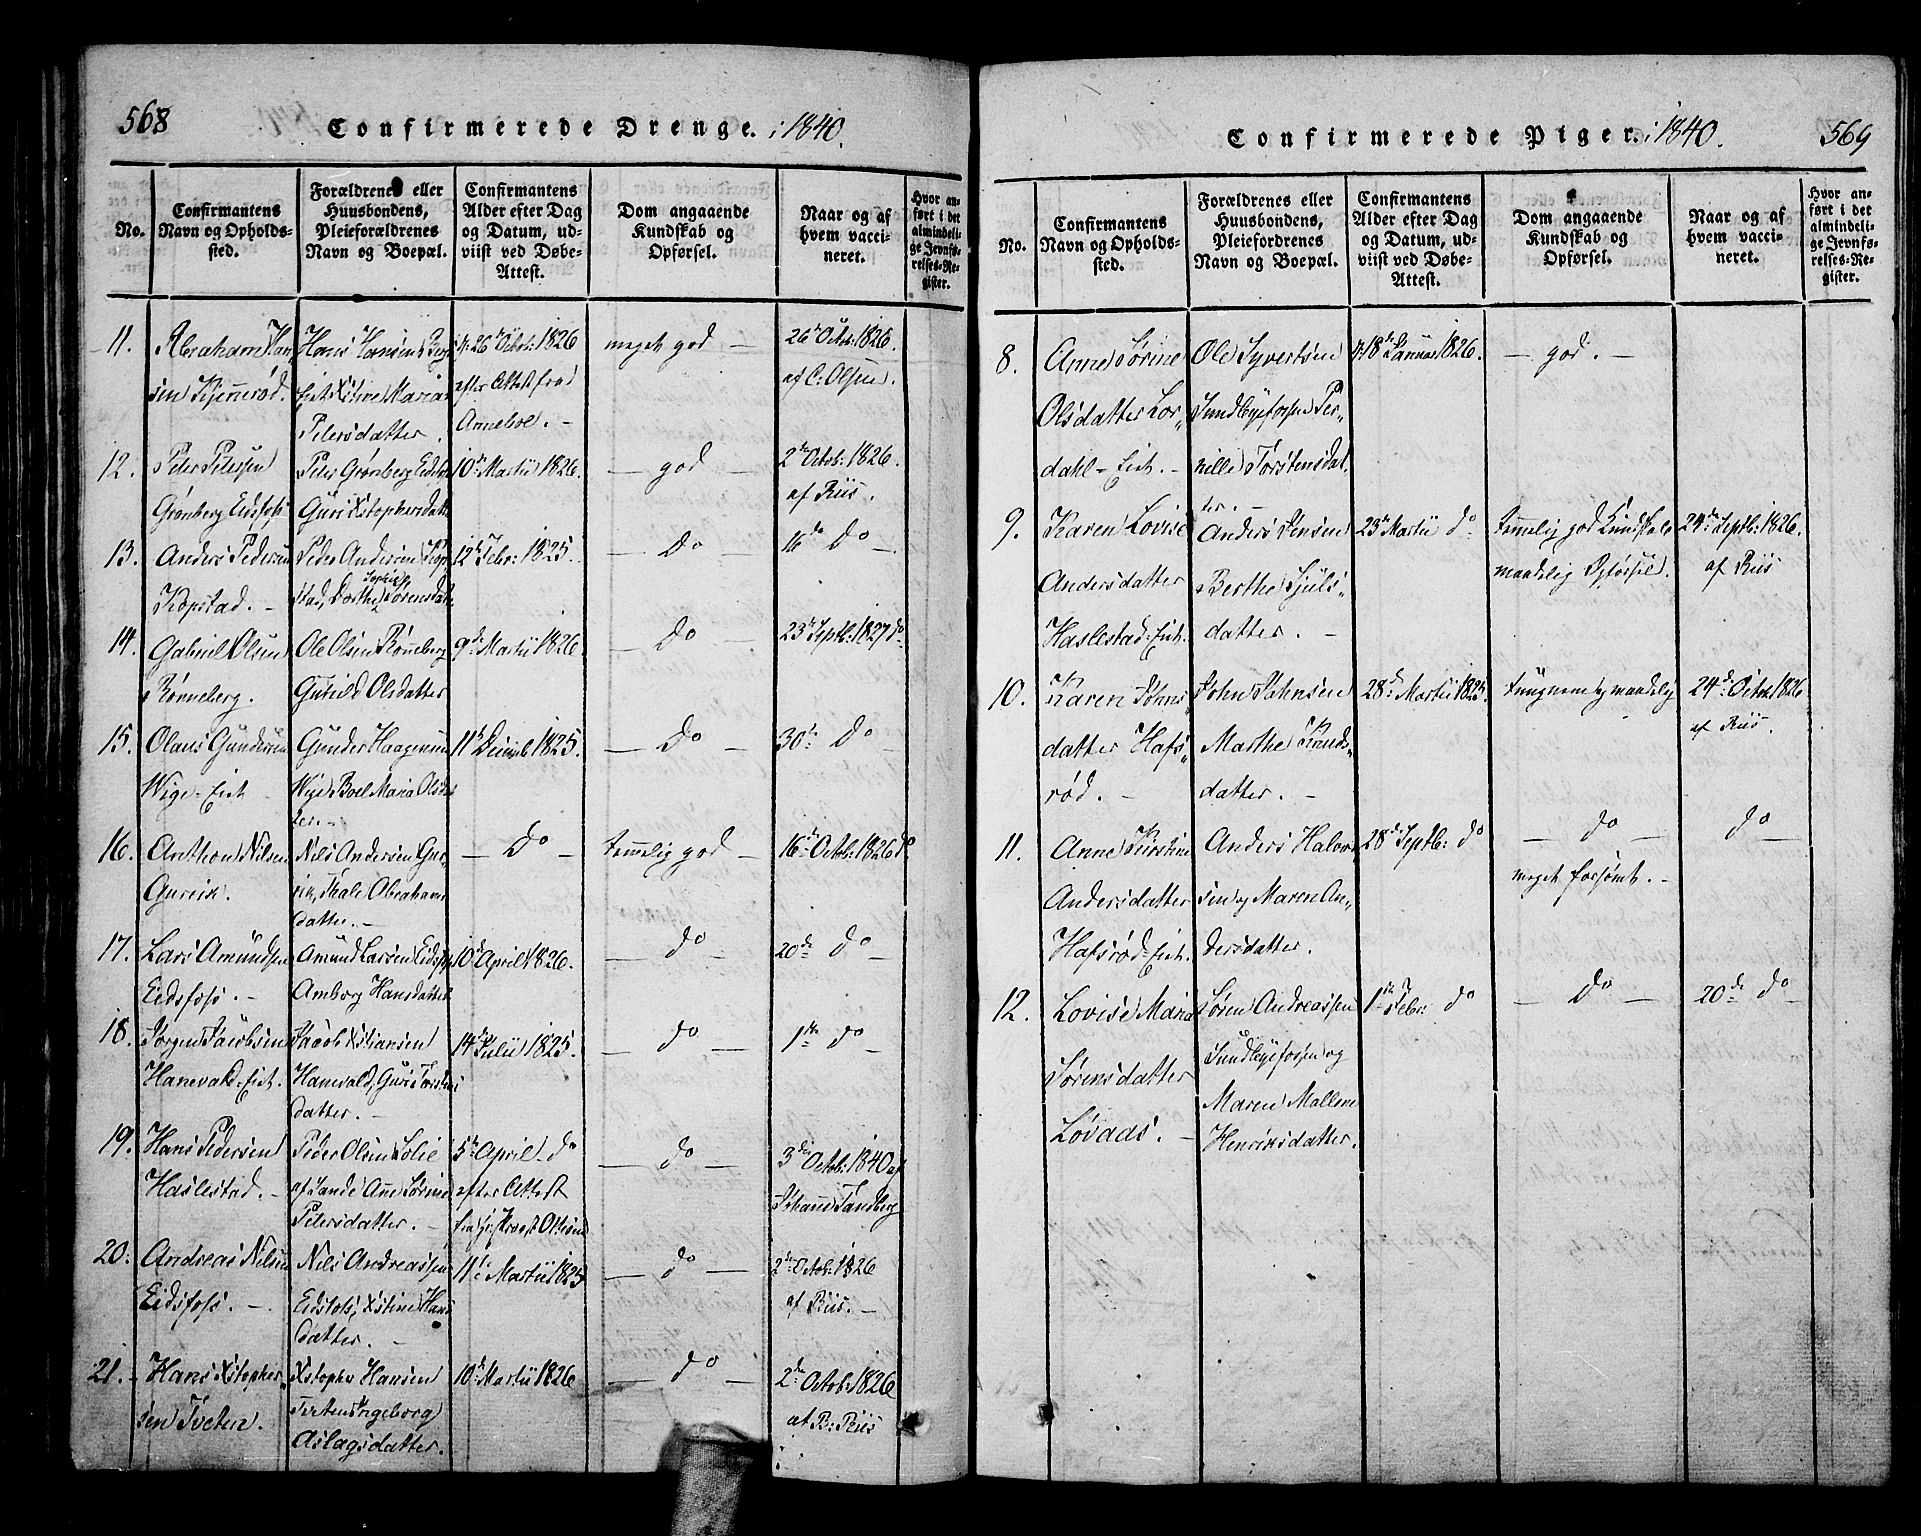 568
Confirmerede Drenge. i 1840.
No.
Confirmantens
Navn og Opholds-
sted.
Forældrenes eller
Huusbondens,
Pleieforældrenes
Navn og Boepæl.
Confirmantens
Alder efter Dag
og Datum, ud-
viist ved Døbe-
Attest.
Dom angaaende
Kundskab og
Opførsel.
Naar og af
hvem vacci-
neret.
Hvor an-
ført i det
almindeli-
ge Jevnfø-
relses-Re-
gister.
11. Abraham Han
sen
Hans Hansen
Maria
Petersdatter.
26de Octob: 1826
efter Attest fra
meget god —
26de Octob: 1826.
af C: Olsen.
12. Peter Petersen
Grønberg Eidsfoss
Peter Grønberg
Guri Xstophersdatt
10de Martii 1826.
— god —
2den Octob: 1826.
af Riis.
13. Anders Pedersen
Kopstad. —
Peder Andersen Kop
stad, Dorthe Sophie Sørensdat
12te Febr: 1825.
— Do —
16de Do —
14. Gabriel Olsen
Rønneberg.
Ole Olsen Rønneberg
Gurild Olsdatter
9de Martii 1826.
— Do —
23de Septb: 1827 do
15. Olaus Gundersen
Wige - Eich —
Gunder Haagensen
Wige Boel Maria Olsdat
ter. —
11te Decemb 1825.
— Do —
30te Do —
16. Anthon Nilsen
Gurrik.
Nils Andersen Gur
rik, Thale Abrahams
datter. —
— Do —
temmelig god —
16de Octob: 1826 do
17. Lars Amundsen
Eidsfoss. —
Amund Larsen Eidsfoss
Amborg Hansdatter
10de April 1826.
— do —
20de do —
18. Jørgen Jacobsen
Hanevald - Eich.
Jacob Xstiansen
Hanevald, Guri Torstens
datter. —
14de Julii 1825.
— do —
1ste do —
19. Hans Pedersen
Haslestad. —
Peder Olsen Solie
af Sande Ane Sørine
Petersdatter. —
5te April — do
efter Attest
fra
— do —
3die Octob: 1840 af
Johanne Tandberg
20. Andreas Nilsen
Eidsfoss. —
Nils Andreassen
Eidsfoss, Xstine Hans
datter. —
11te Martii 1825
— do —
2den Octob: 1826
af Riis. —
21. Hans Xstopher-
sen Tveten.
Xstopher Hansen
Tveten Ingeborg
Aslagsdatter.
10de Martii 1826
— do —
2den Octob: 1826
af B: Riis
Confirmerede Piger. i 1840.
569
No.
Confirmantens
Navn og Opholds-
sted.
Forældrenes eller
Huusbondens,
Pleiefordrenes
Navn og Boepæl.
Confirmantens
Alder efter Dag
og Datum, ud-
viist ved Døbe-
Attest.
Dom angaaende
Kundskab og
Opførsel.
Naar og af
hvem vacci-
neret.
Hvor an-
ført i det
almindeli-
ge Jevnfø-
relses-Re-
gister.
8. Anne Sørine
Olsdatter Lor-
dahl - Eich. —
Ole Syvertsen
Sundbyefossen Per-
nille Torstensdat
ter. —
18de Januar 1826.
— god. —
9. Karen Lovise
Andersdatter
Haslestad - Eich.
Anders Jensen
Berthe Sjuls-
datter. —
23de Martii do
temmelig god Kundskab
maadelig Opførsel.
24de Septb: 1826.
af Riis
10. Karen Johns-
datter Hafs-
rød. —
John Johnsen
Marthe Knuds-
datter. —
28de Martii 1825.
tungnem og maadelig
24de Octob 1826
af Riis.
11. Anne Kirstine
Andersdatter
Hafsrød - Eich.
Anders Halvor
sen og Maren An-
dersdatter.
28de Septb: do
— do —
meget forsømt. —
— do —
12. Lovise Maria
Sørensdatter
Løvaas. —
Søren Andreassen
Sundbyefossen og
Maren Mallene
Henriksdatter.
1ste Febr: do
— Do —
20de do —